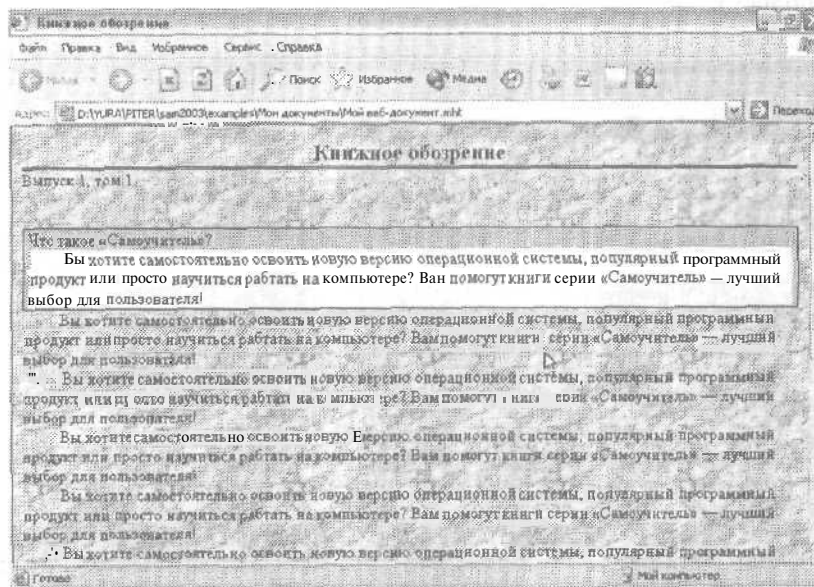 Книжное обозрение
Файл Правка Вид Избранное Сервис Справка
Назад Поиск Избранное Медиа
Адрес: D:\YURA\PITER\sam2003\examples\Мои документы\Мой веб-документ.mht Переход
Книжное обозрение
Выпуск 1, том 1
Что такое «Самоучитель»?
Бы хотите самостоятельно освоить новую версию операционной системы, популярный программный
продукт или просто научиться рабтать на компьютере? Ван помогут книги серии «Самоучитель» — лучший
выбор для пользователя!
Вы хотите самостоятельно освоить новую версию операционной системы, популярный программный
продукт или просто научиться рабтать на компьютере? Вам помогут книги серии «Самоучитель» — лучший
выбор для пользователя!
Вы хотите самостоятельно освоить новую версию операционной системы, популярный программный
продукт научиться рабтать Вам «Самоучитель» — лучший
выбор для пользователя!
Вы хотите самостоятельно освоить новую Еерсию операционной системы, популярный программный
продукт или просто научиться рабтать на компьютере? Вам помогут книги серии «Самоучитель» — лучший
выбор для пользователя!
Вы хотите самостоятельно освоить новую версию операционной системы, популярный программный
продукт или просто научиться рабтать на компьютере? Вам помогут книги серии «Самоучитель» — лучший
выбор для пользователя!
Вы хотите самостоятельно освоить новую версию операционной системы, популярный программный
Готово Мой компьютер